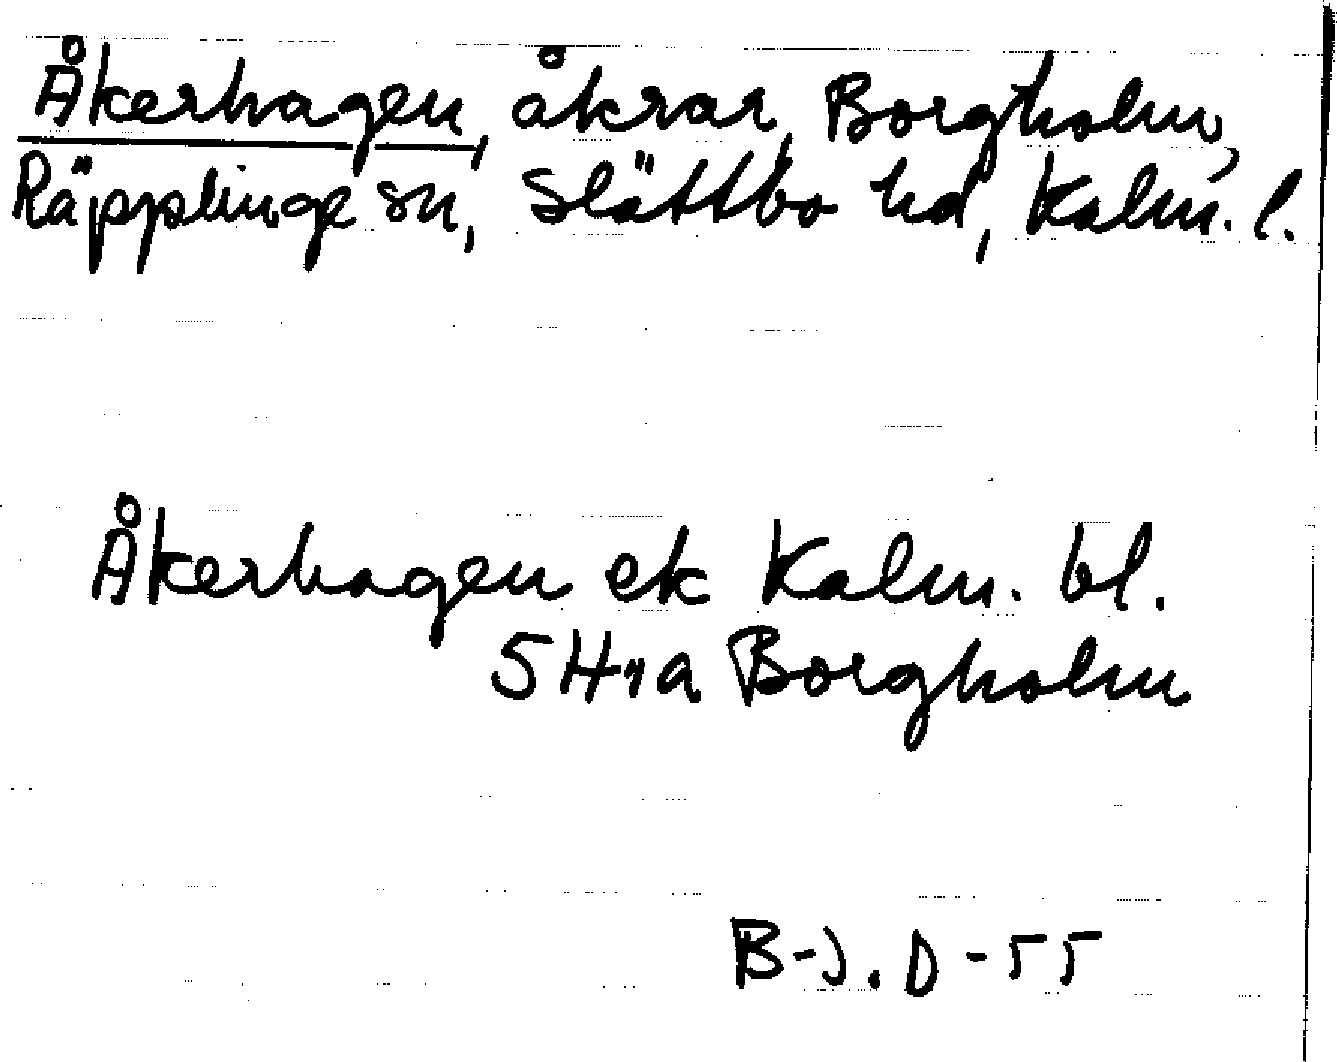 Åkerhagen, åkrar, Borgholm,
Räpplinge sn, Slättbo hd, Kalm. l.
Åkerhagen ek Kalm. bl.
5 H 1a Borgholm
B-J. D -55